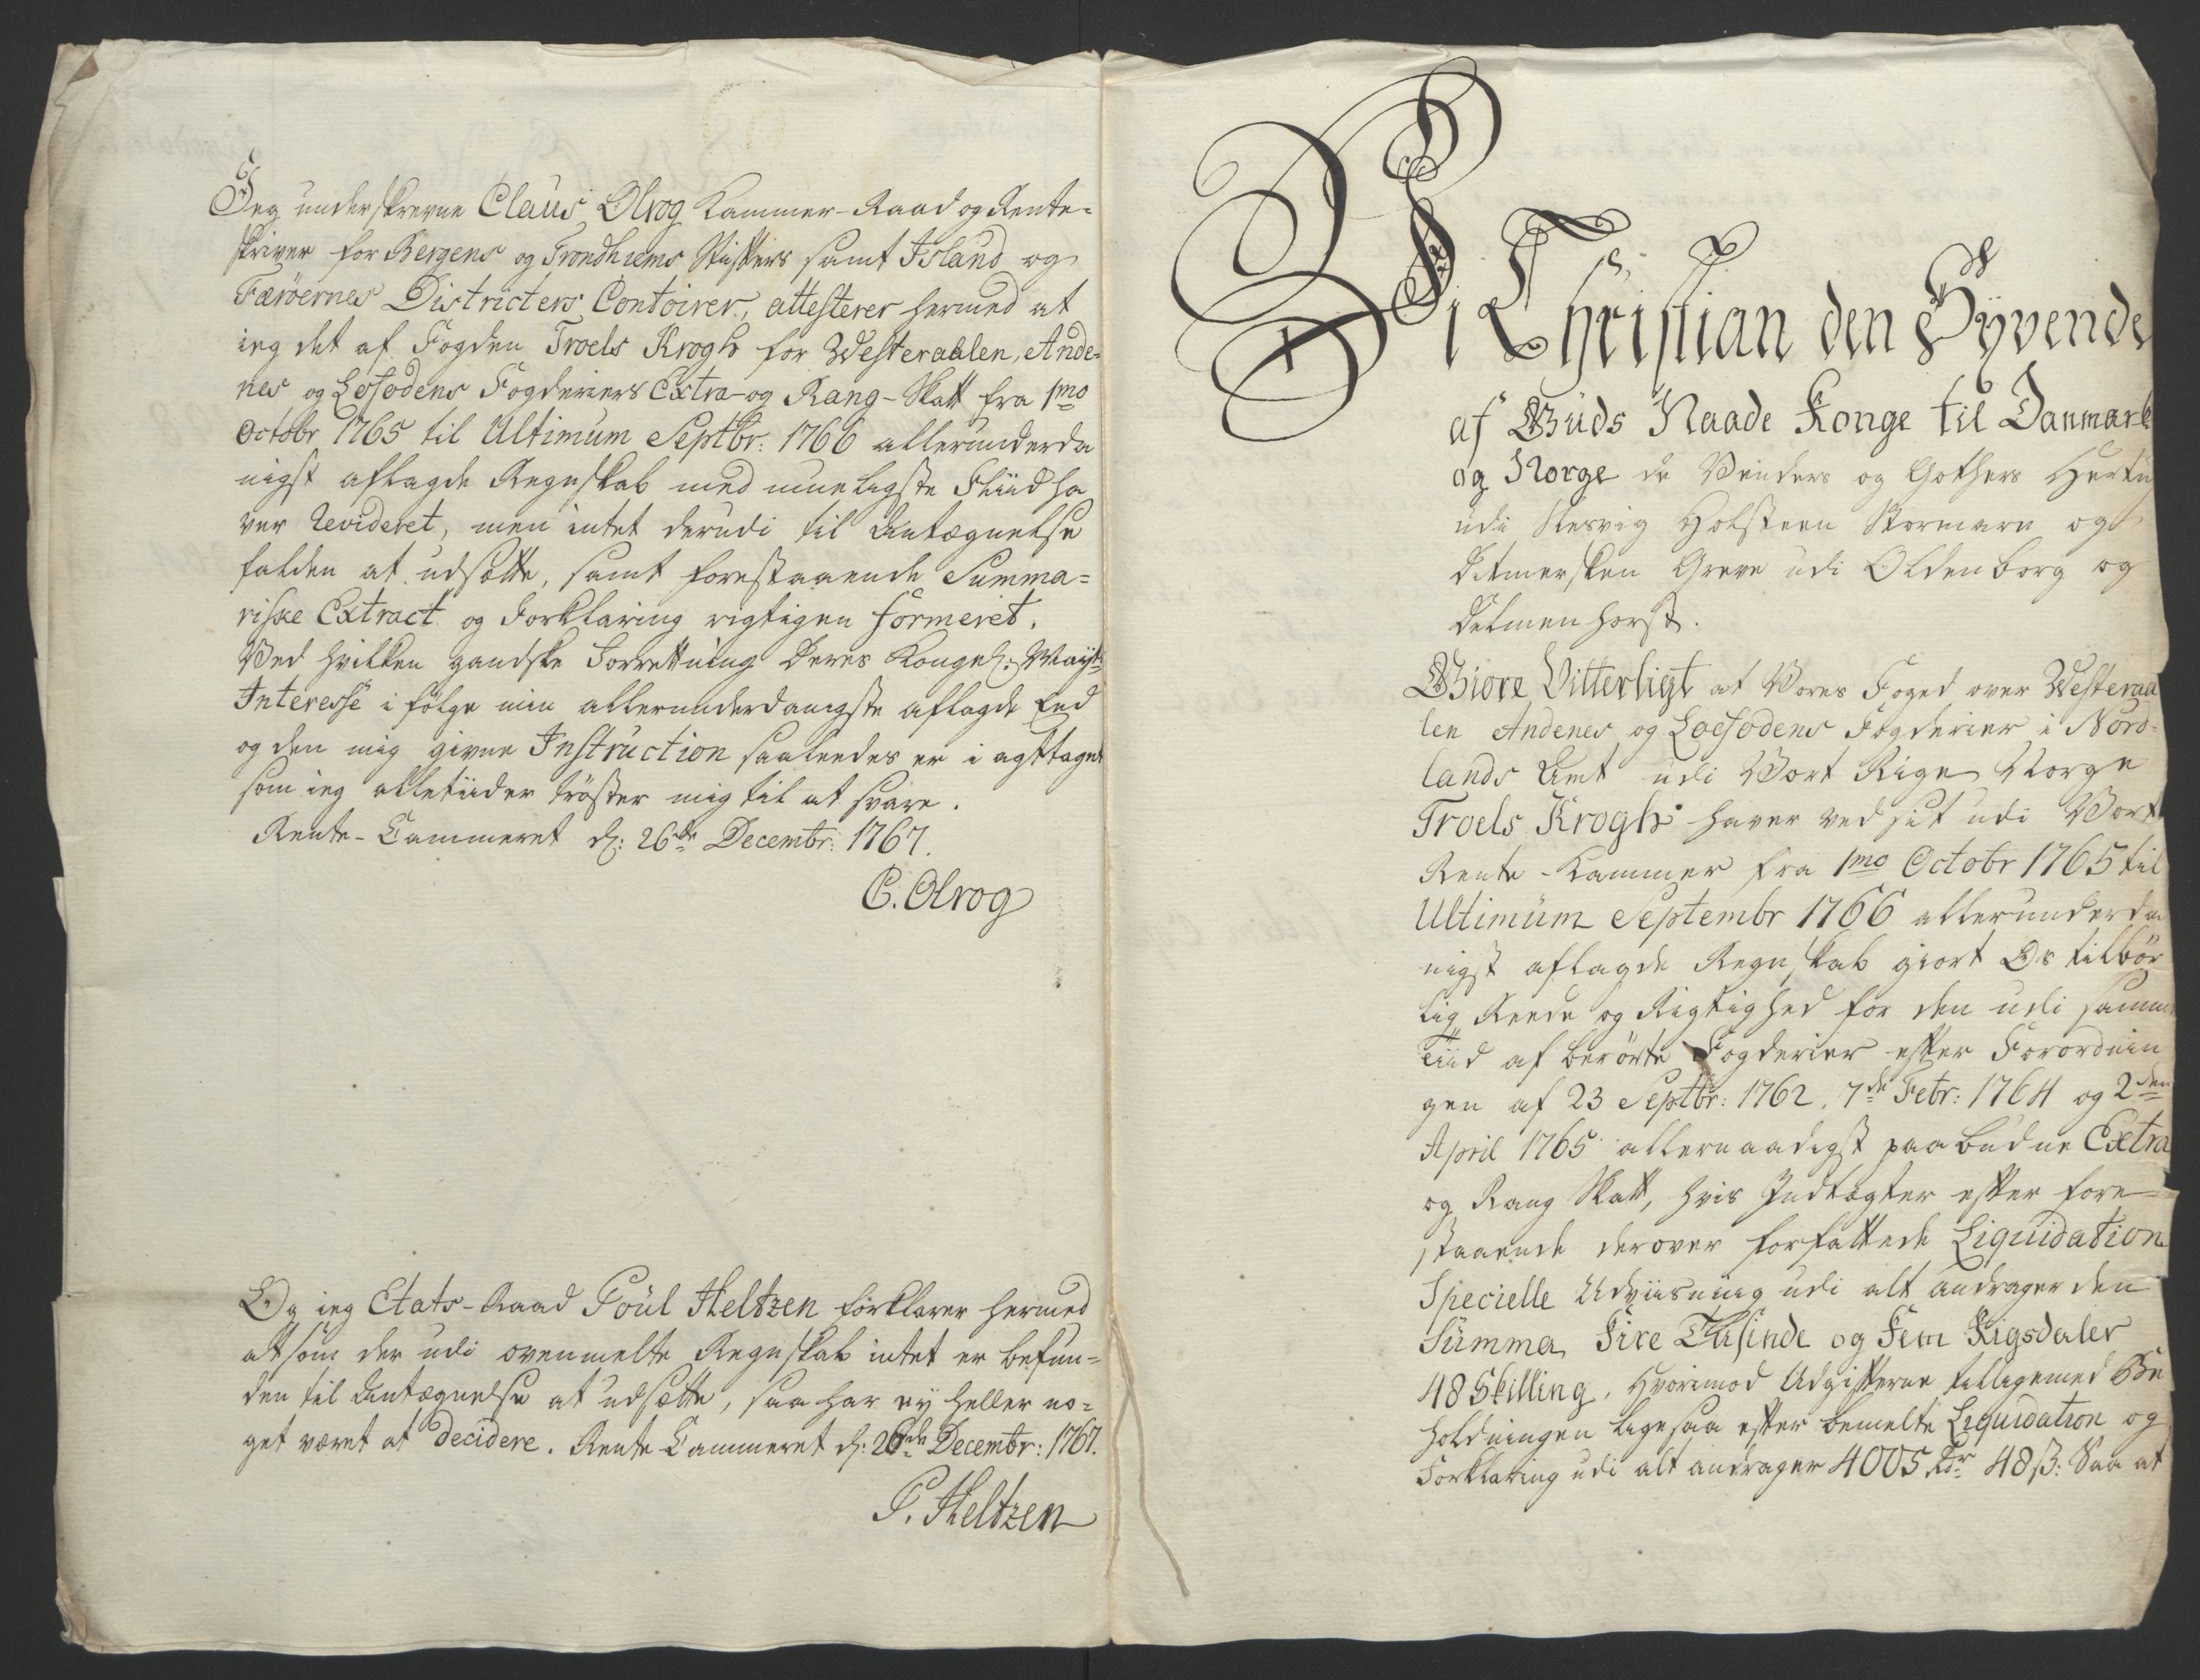 Jeg underskrevne Claus Olrog Kammer-Raad og Rente-
skriver for Bergens og Trondhiems Stifters samt Island og
Færöernes Districters Contoirer, attesterer hermed at
ieg det af Fogden Troels Krogh for Westeraalen, Ande-
nes og Lofodens Fogderiers Extra- og Rang-Skatt fra 1mo
Octobr 1765 til Ultimum Septbr: 1766 allerunderda
nigst aflagde Regnskab med mueligste Fliid ha
ver Revideret, men intet derudi til Antægnelse
falden at udsætte, samt forestaaende Summa-
riske Extract og Forklaring rigtigen formeret.
Ved hvilken gandske Forrettning Deres Kongel: Mayts
Interesse i følge min allerunderdanigste aflagde Eed
og den mig givne Instruction saaledes er i agttaget
som ieg alletiider tröster mig til at svare.
Rente-Cammeret d: 26de Decembr: 1767.
C. Olrog
Og ieg Etats-Raad Poul Heltzen forklarer hermed
at som der udi ovenmelte Regnskab intet er befun-
den til Antægnelse at udsætte, saa har ey heller no-
get været at decidere. Rente Cammeret d: 26de Decembr: 1767.
P. Heltzen
Vi Christian den Syvende
af Guds Naade Konge til Danmark
og Norge de Venders og Gothers Hertug
udi Slesvig Holsteen Stormarn og
Ditmersken Greve udi Oldenborg og
Delmenhorst.
Giøre Vitterligt at Vores Foged over Westeraa
len Andenes og Loefodens Fogderier i Nord-
lands Amt udi Vort Rige Norge
Troels Krogh haver ved sit udi Vort
Rente-Kammer fra 1mo Octobr 1765 til
Ultimum Septembr 1766 allerunderda
nigst aflagde Regnskab giort Os tilbör
lig Reede og Rigtighed for den udi samme
Tiid af berörte Fogderier efter Forordnin
gen af 23 Septbr: 1762, 7de Febr: 1764 og 2den
April 1765 allernaadigst paabudne Extra
og Rang Skatt, hvis Indtægter efter fore-
staaende derover forfattede Liquidation
Specielle Udviisning udi alt andrager den
Summa Fire Tusinde og Fem Rigsdaler
48 Skilling, Hvorimod Udgifterne tilligemed Be
holdningen ligesaa efter bemelte Liquidation og
Forklaring udi alt andrager 4005 Rdr 48 ß: Saa at